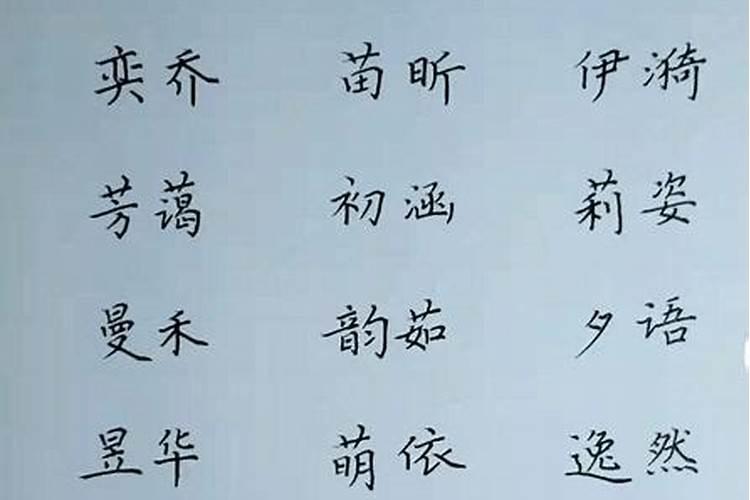 奕乔 苗昕 伊漪
芳蔼 初涵 莉姿
曼禾 韵茹 夕语
昱华 萌依 逸然